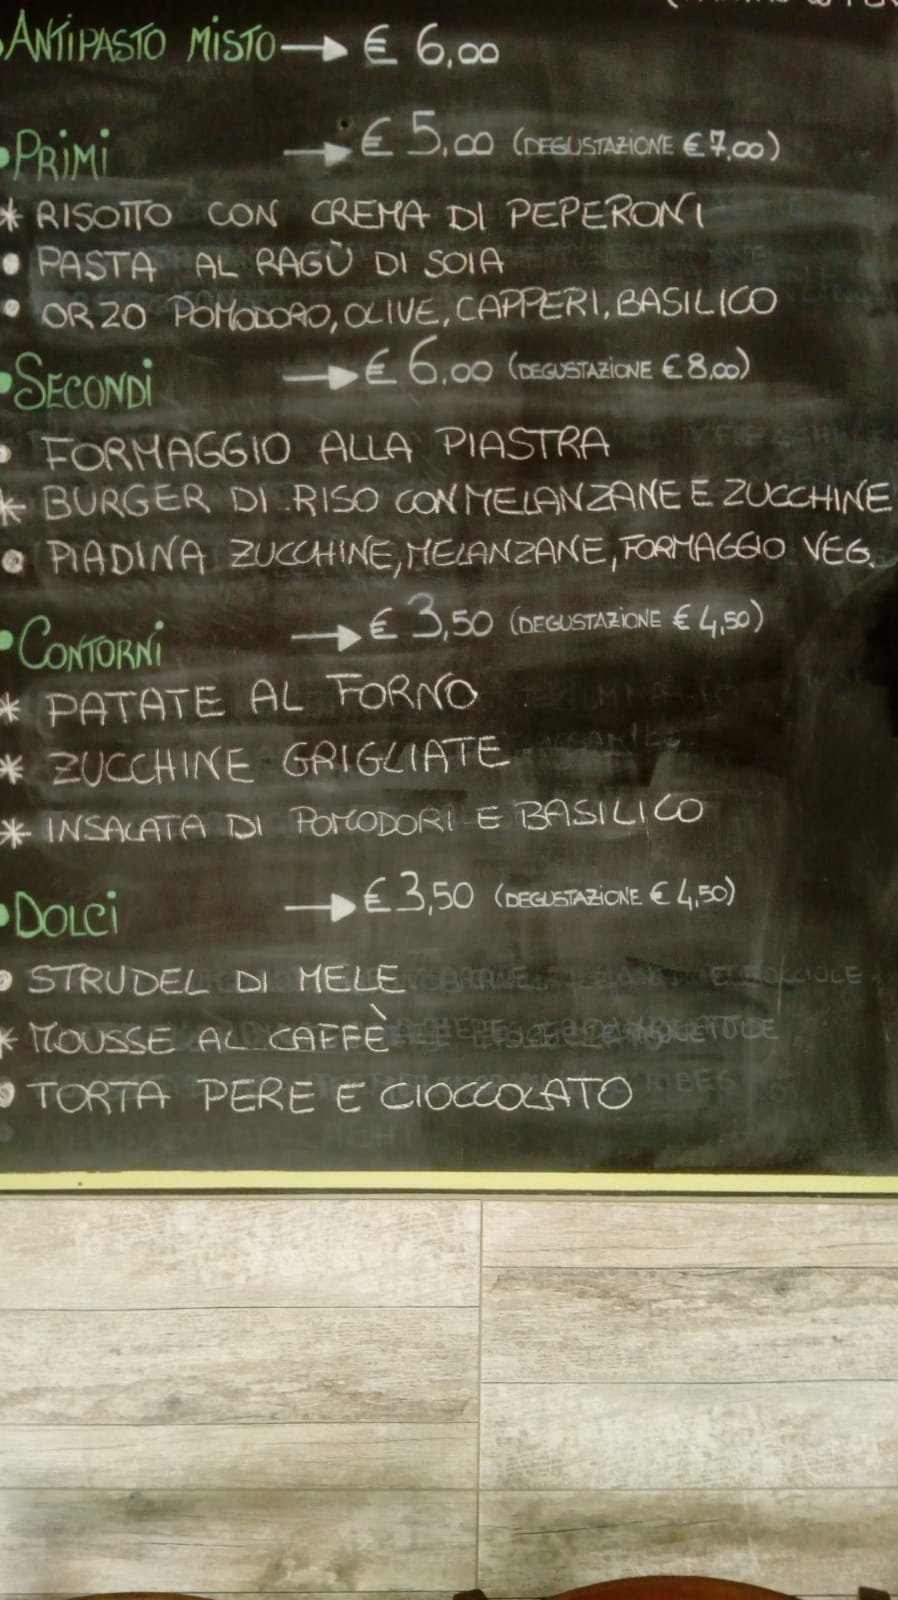 •ANTIPASTO MISTO → € 6,00
•PRIMI → € 5,00 (DEGUSTAZIONE € 7,00)
* RISOTTO CON CREMA DI PEPERONI
• PASTA AL RAGÙ DI SOIA
• ORZO POMODORO, OLIVE, CAPPERI, BASILICO
•SECONDI → € 6,00 (DEGUSTAZIONE € 8,00)
• FORMAGGIO ALLA PIASTRA
* BURGER DI RISO CON MELANZANE E ZUCCHINE
• PIADINA ZUCCHINE, MELANZANE, FORMAGGIO VEG.
•CONTORNI → € 3,50 (DEGUSTAZIONE € 4,50)
* PATATE AL FORNO
* ZUCCHINE GRIGLIATE
* INSALATA DI POMODORI E BASILICO
•DOLCI → € 3,50 (DEGUSTAZIONE € 4,50)
• STRUDEL DI MELE
* MOUSSE AL CAFFÈ
• TORTA PERE E CIOCCOLATO